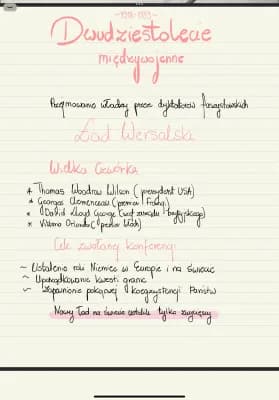 -1918-1939-
Dwudziestolecie
międzywojenne
Przejmowanie władzy przez dyktatorów faszystowskich
Ład Wersalski
Wielka Czwórka
* Thomas Woodrow Wilson (prezydent USA)
* Georges Clemenceau (premier Francji)
* David Lloyd George (szef rządu brytyjskiego)
* Vittorio Orlando (premier Włoch)
Cele zwołanej konferencji
~ Ustalenie roli Niemiec w Europie i na świecie
~ Uporządkowanie kwestii granic
~ Zapewnienie pokojowej koegzystencji Państw
Nowy ład na świecie ustalili tylko zwycięzcy